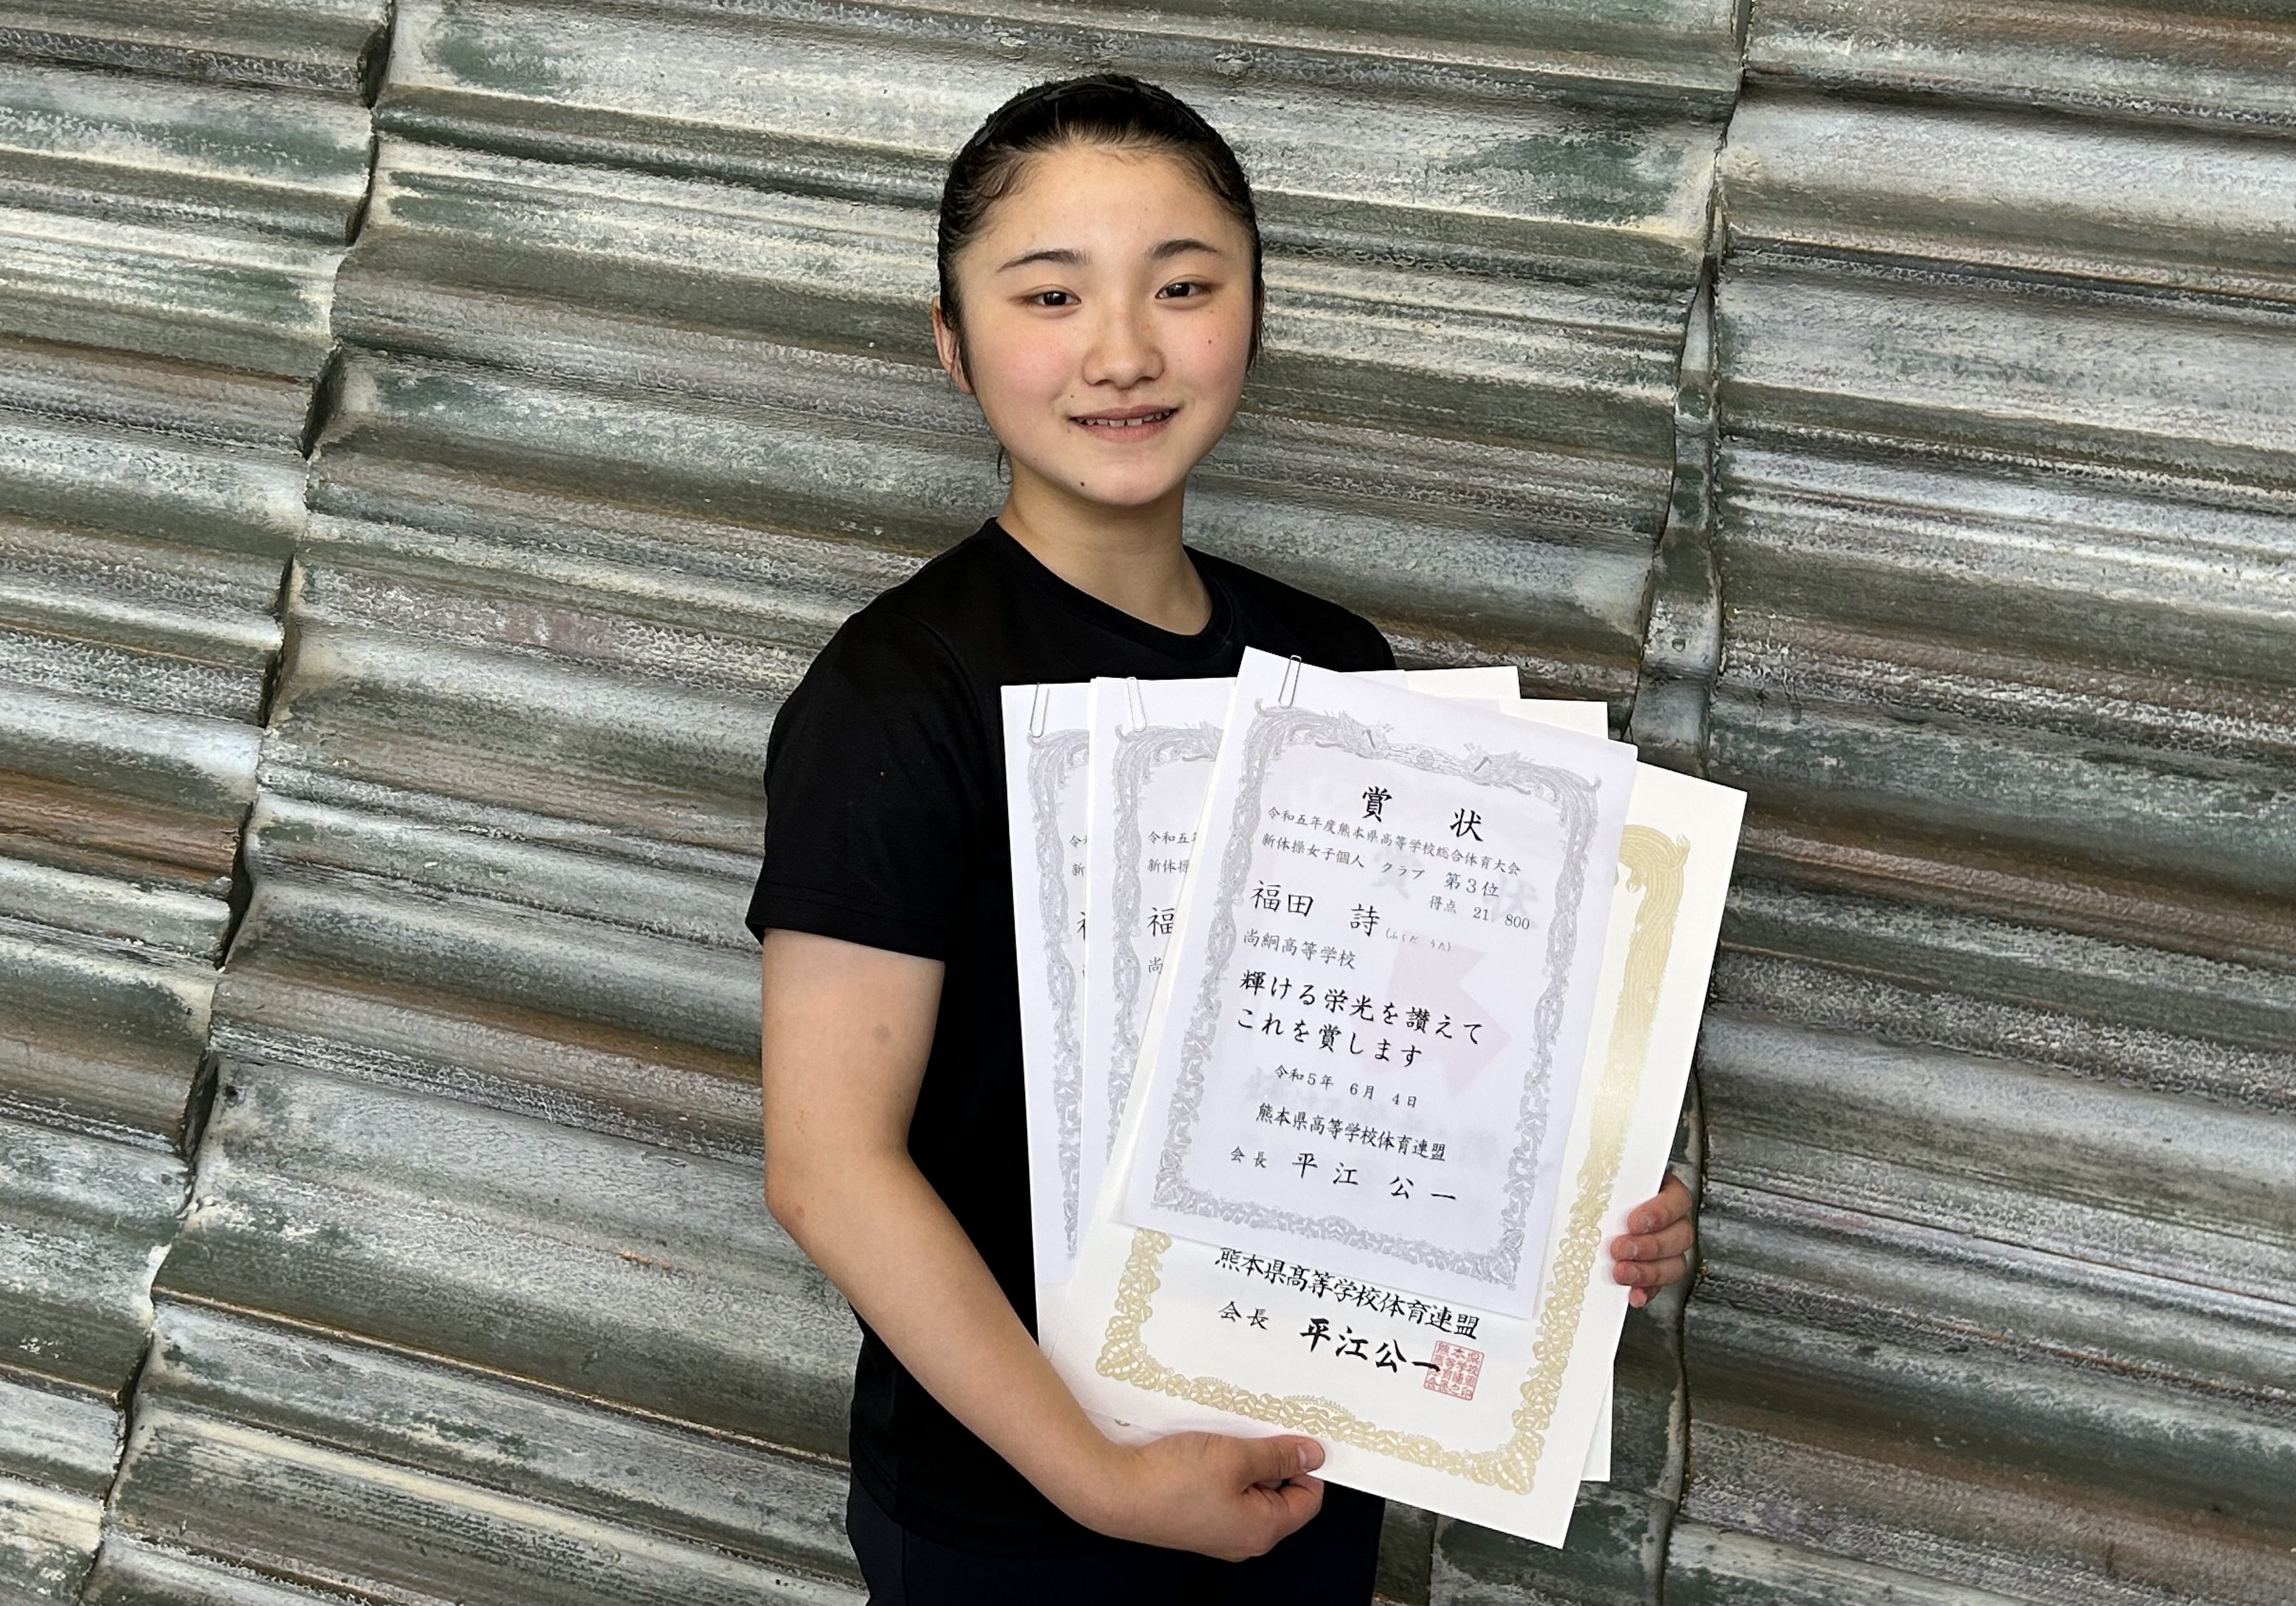 賞 状
令和五年度熊本県高等学校総合体育大会
新体操女子個人 クラブ 第3位
得点 21.800
福田 詩 (ふくだ うた)
尚絅高等学校
輝ける栄光を讃えて
これを賞します
令和5年 6月 4日
熊本県高等学校体育連盟
会長 平江 公一
熊本県高等学校体育連盟
会長 平江公一
令和五
新体操
福
尚
令和
新